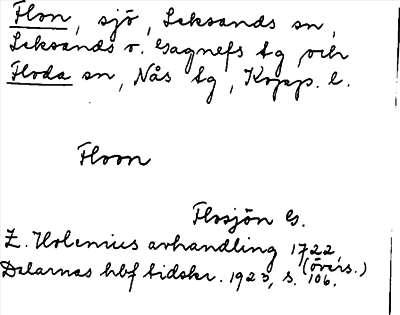 Flon, sjö, Leksands sn,
Leksands o. Gagnefs tg och
Floda sn, Nås tg, Kopp. l.
Floon
Flosjön G.
Z. Holenius avhandling 1722,
(övers.)
Dalarnas hbf tidskr. 1923, s. 106.